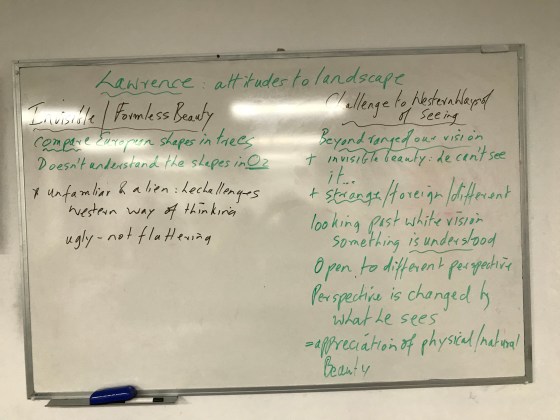 Lawrence : attitudes to landscape
Invisible / Formless Beauty
compare European shapes in trees
Doesn't understand the shapes in Oz
* unfamiliar & alien : he challenges
western way of thinking
ugly - not flattering
Challenge to Western Ways of
of seeing
Beyond range of our vision
+ invisible beauty : he can't see
it...
+ strange / foreign / different
looking past white vision
something is understood
Open to different perspective
Perspective is changed by
what he sees
= appreciation of physical / natural
Beauty